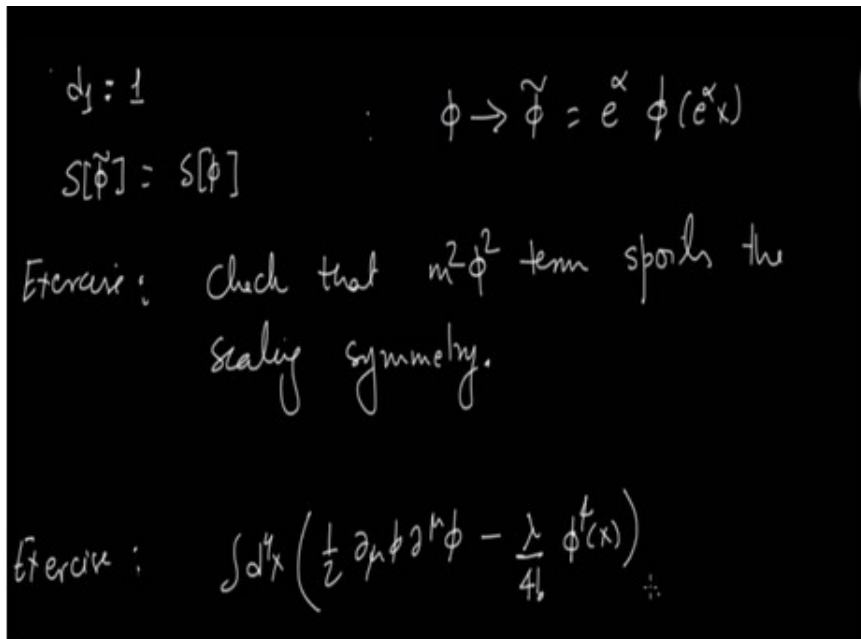 d₁ : 1
ϕ → ϕ̃ = e^α ϕ(e^α x)
S[ϕ̃] = S[ϕ]
Exercise : Check that m²ϕ² term spoils the
scaling symmetry.
Exercise : ∫d⁴x ( 1/2 ∂_μ ϕ ∂^μ ϕ − λ/4! ϕ⁴(x) )